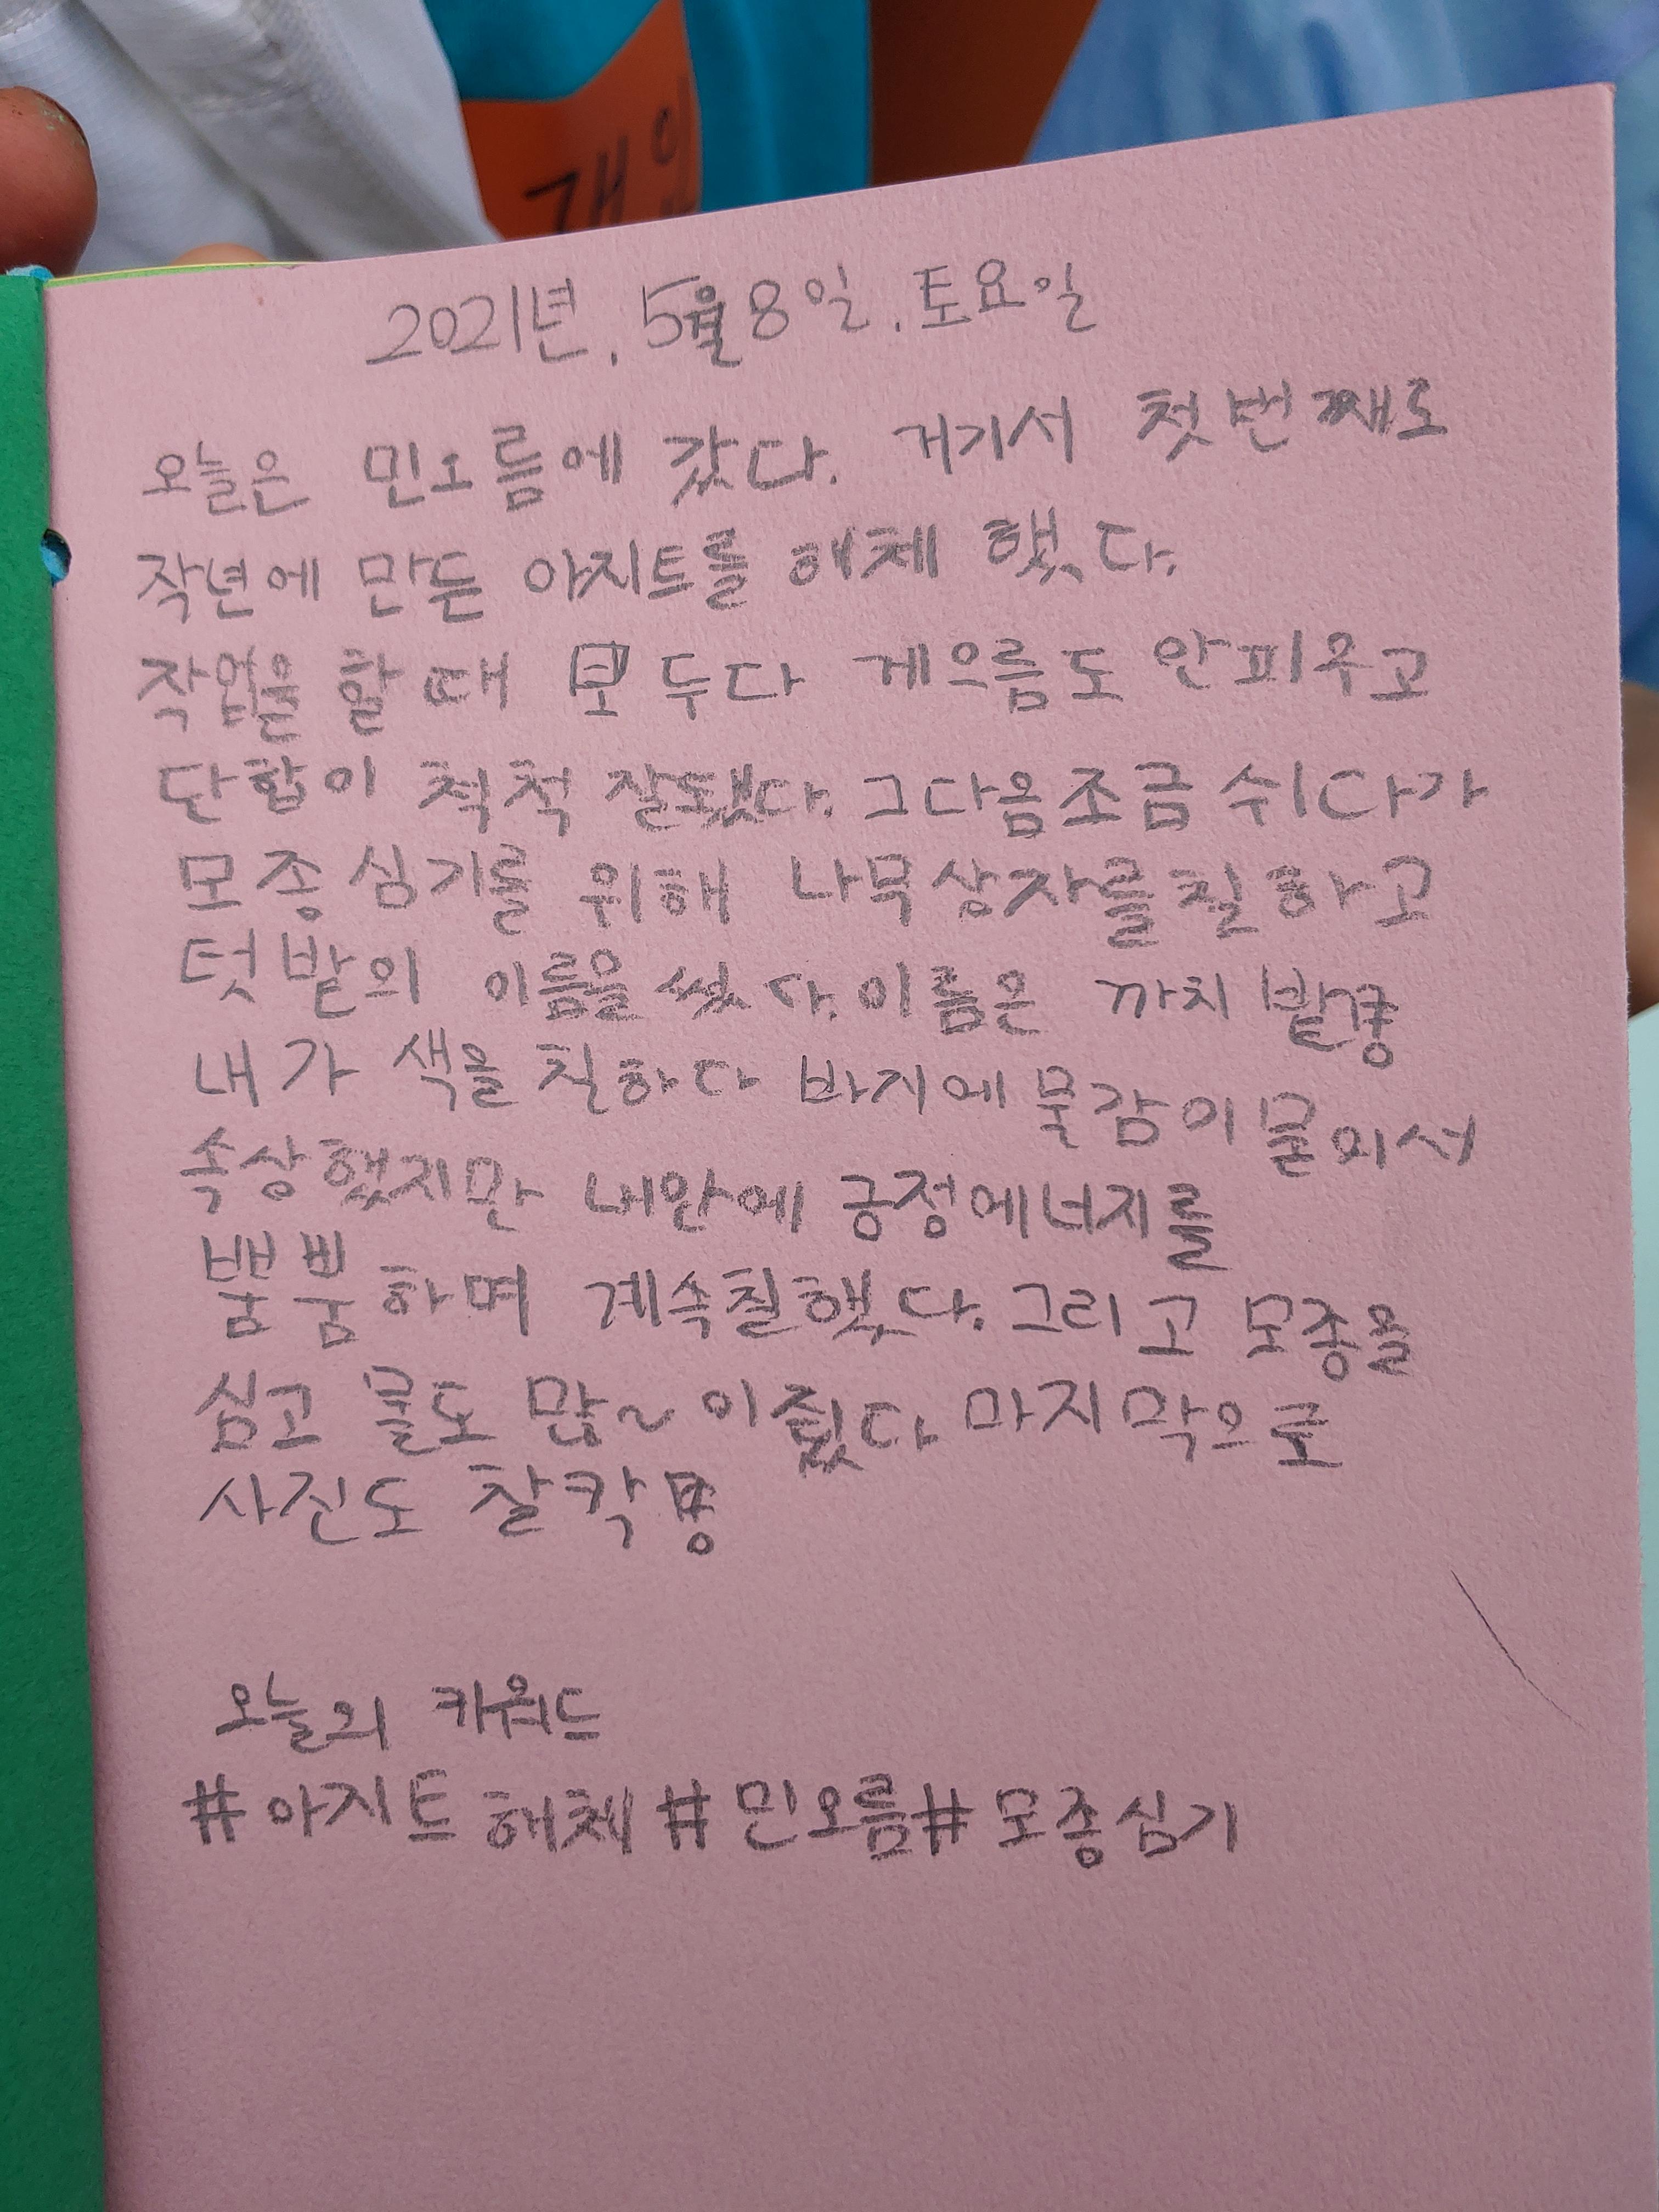 개인
2021년. 5월 8일. 토요일
오늘은 민오름에 갔다. 거기서 첫번째로
작년에 만든 아지트를 해체 했다.
작업을 할때 모두다 게으름도 안피우고
단합이 척척 잘됐다. 그다음조금 쉬다가
모종심기를 위해 나무상자를칠하고
텃밭의 이름을 썼다. 이름은 까치밭
내가 색을 칠하다 바지에 물감이 묻의서
속상했지만 내안에 긍정에너지를
뿜뿜하며 계속칠했다. 그리고 모종을
심고 물도 많~이줬다 마지막으로
사진도 찰칵
오늘의 키워드
#아지트 해체 #민오름 #모종심기